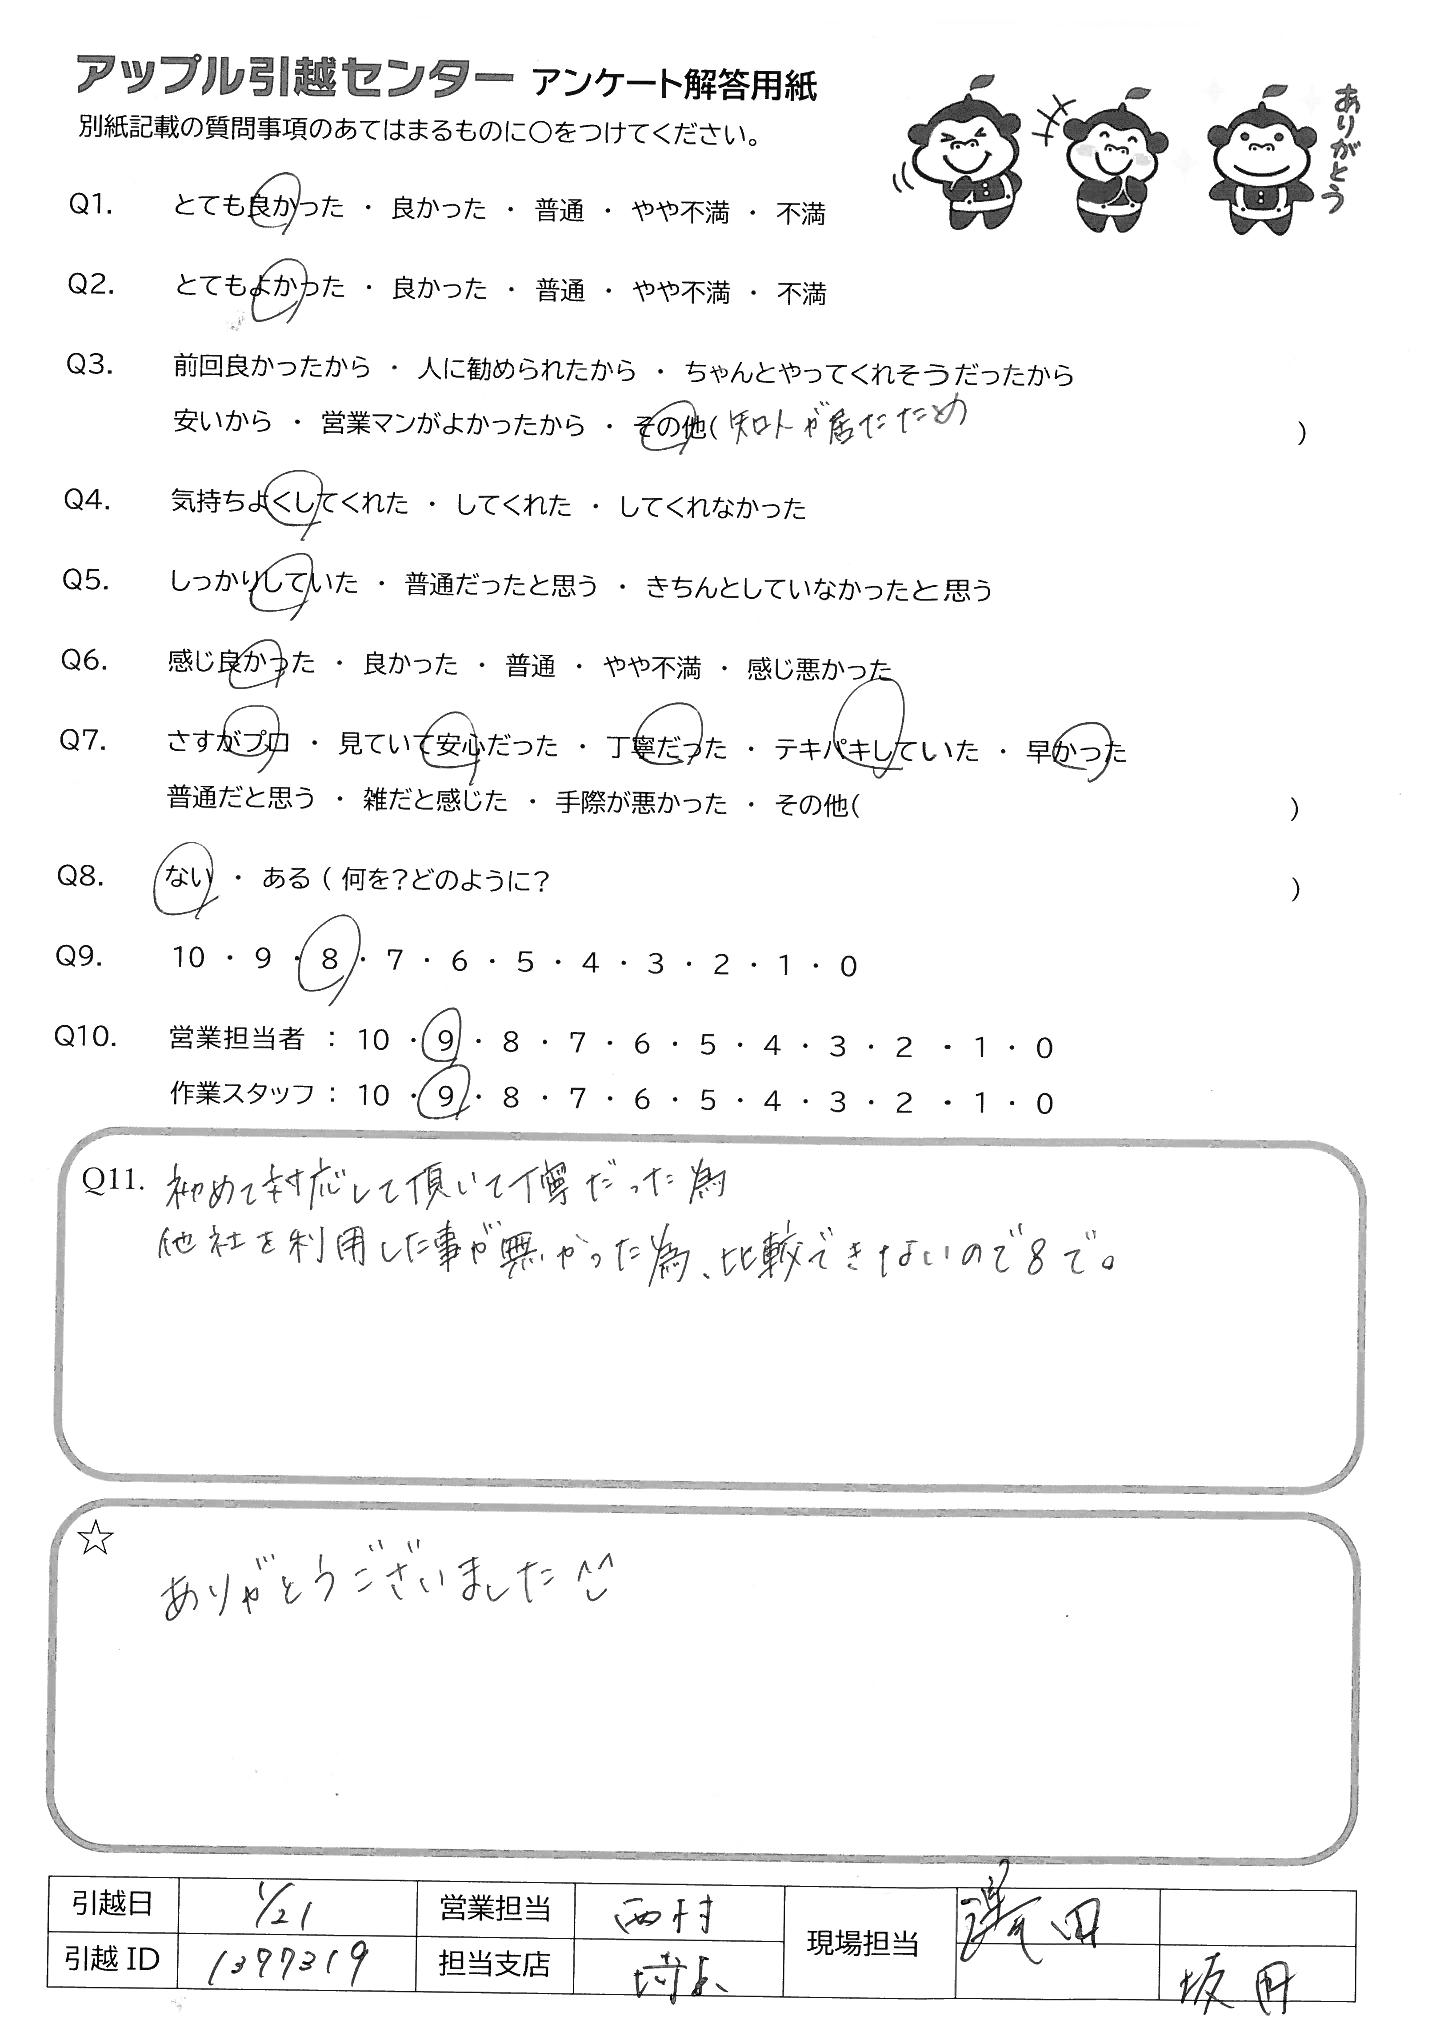 アップル引越センター アンケート解答用紙
別紙記載の質問事項のあてはまるものに○をつけてください。
ありがとう
Q1. とても良かった ・ 良かった ・ 普通 ・ やや不満 ・ 不満
Q2. とてもよかった ・ 良かった ・ 普通 ・ やや不満 ・ 不満
Q3. 前回良かったから ・ 人に勧められたから ・ ちゃんとやってくれそうだったから
安いから ・ 営業マンがよかったから ・ その他( 知人が居たため )
Q4. 気持ちよくしてくれた ・ してくれた ・ してくれなかった
Q5. しっかりしていた ・ 普通だったと思う ・ きちんとしていなかったと思う
Q6. 感じ良かった ・ 良かった ・ 普通 ・ やや不満 ・ 感じ悪かった
Q7. さすがプロ ・ 見ていて安心だった ・ 丁寧だった ・ テキパキしていた ・ 早かった
普通だと思う ・ 雑だと感じた ・ 手際が悪かった ・ その他( )
Q8. ない ・ ある ( 何を?どのように? )
Q9. 10 ・ 9 ・ 8 ・ 7 ・ 6 ・ 5 ・ 4 ・ 3 ・ 2 ・ 1 ・ 0
Q10. 営業担当者 : 10 ・ 9 ・ 8 ・ 7 ・ 6 ・ 5 ・ 4 ・ 3 ・ 2 ・ 1 ・ 0
作業スタッフ : 10 ・ 9 ・ 8 ・ 7 ・ 6 ・ 5 ・ 4 ・ 3 ・ 2 ・ 1 ・ 0
Q11. 初めて対応して頂いて丁寧だった為
他社を利用した事が無かった為、比較できないので8で。
☆
ありがとうございました
引越日 1/21 営業担当 西村 現場担当
引越ID 1377319 担当支店 坂田